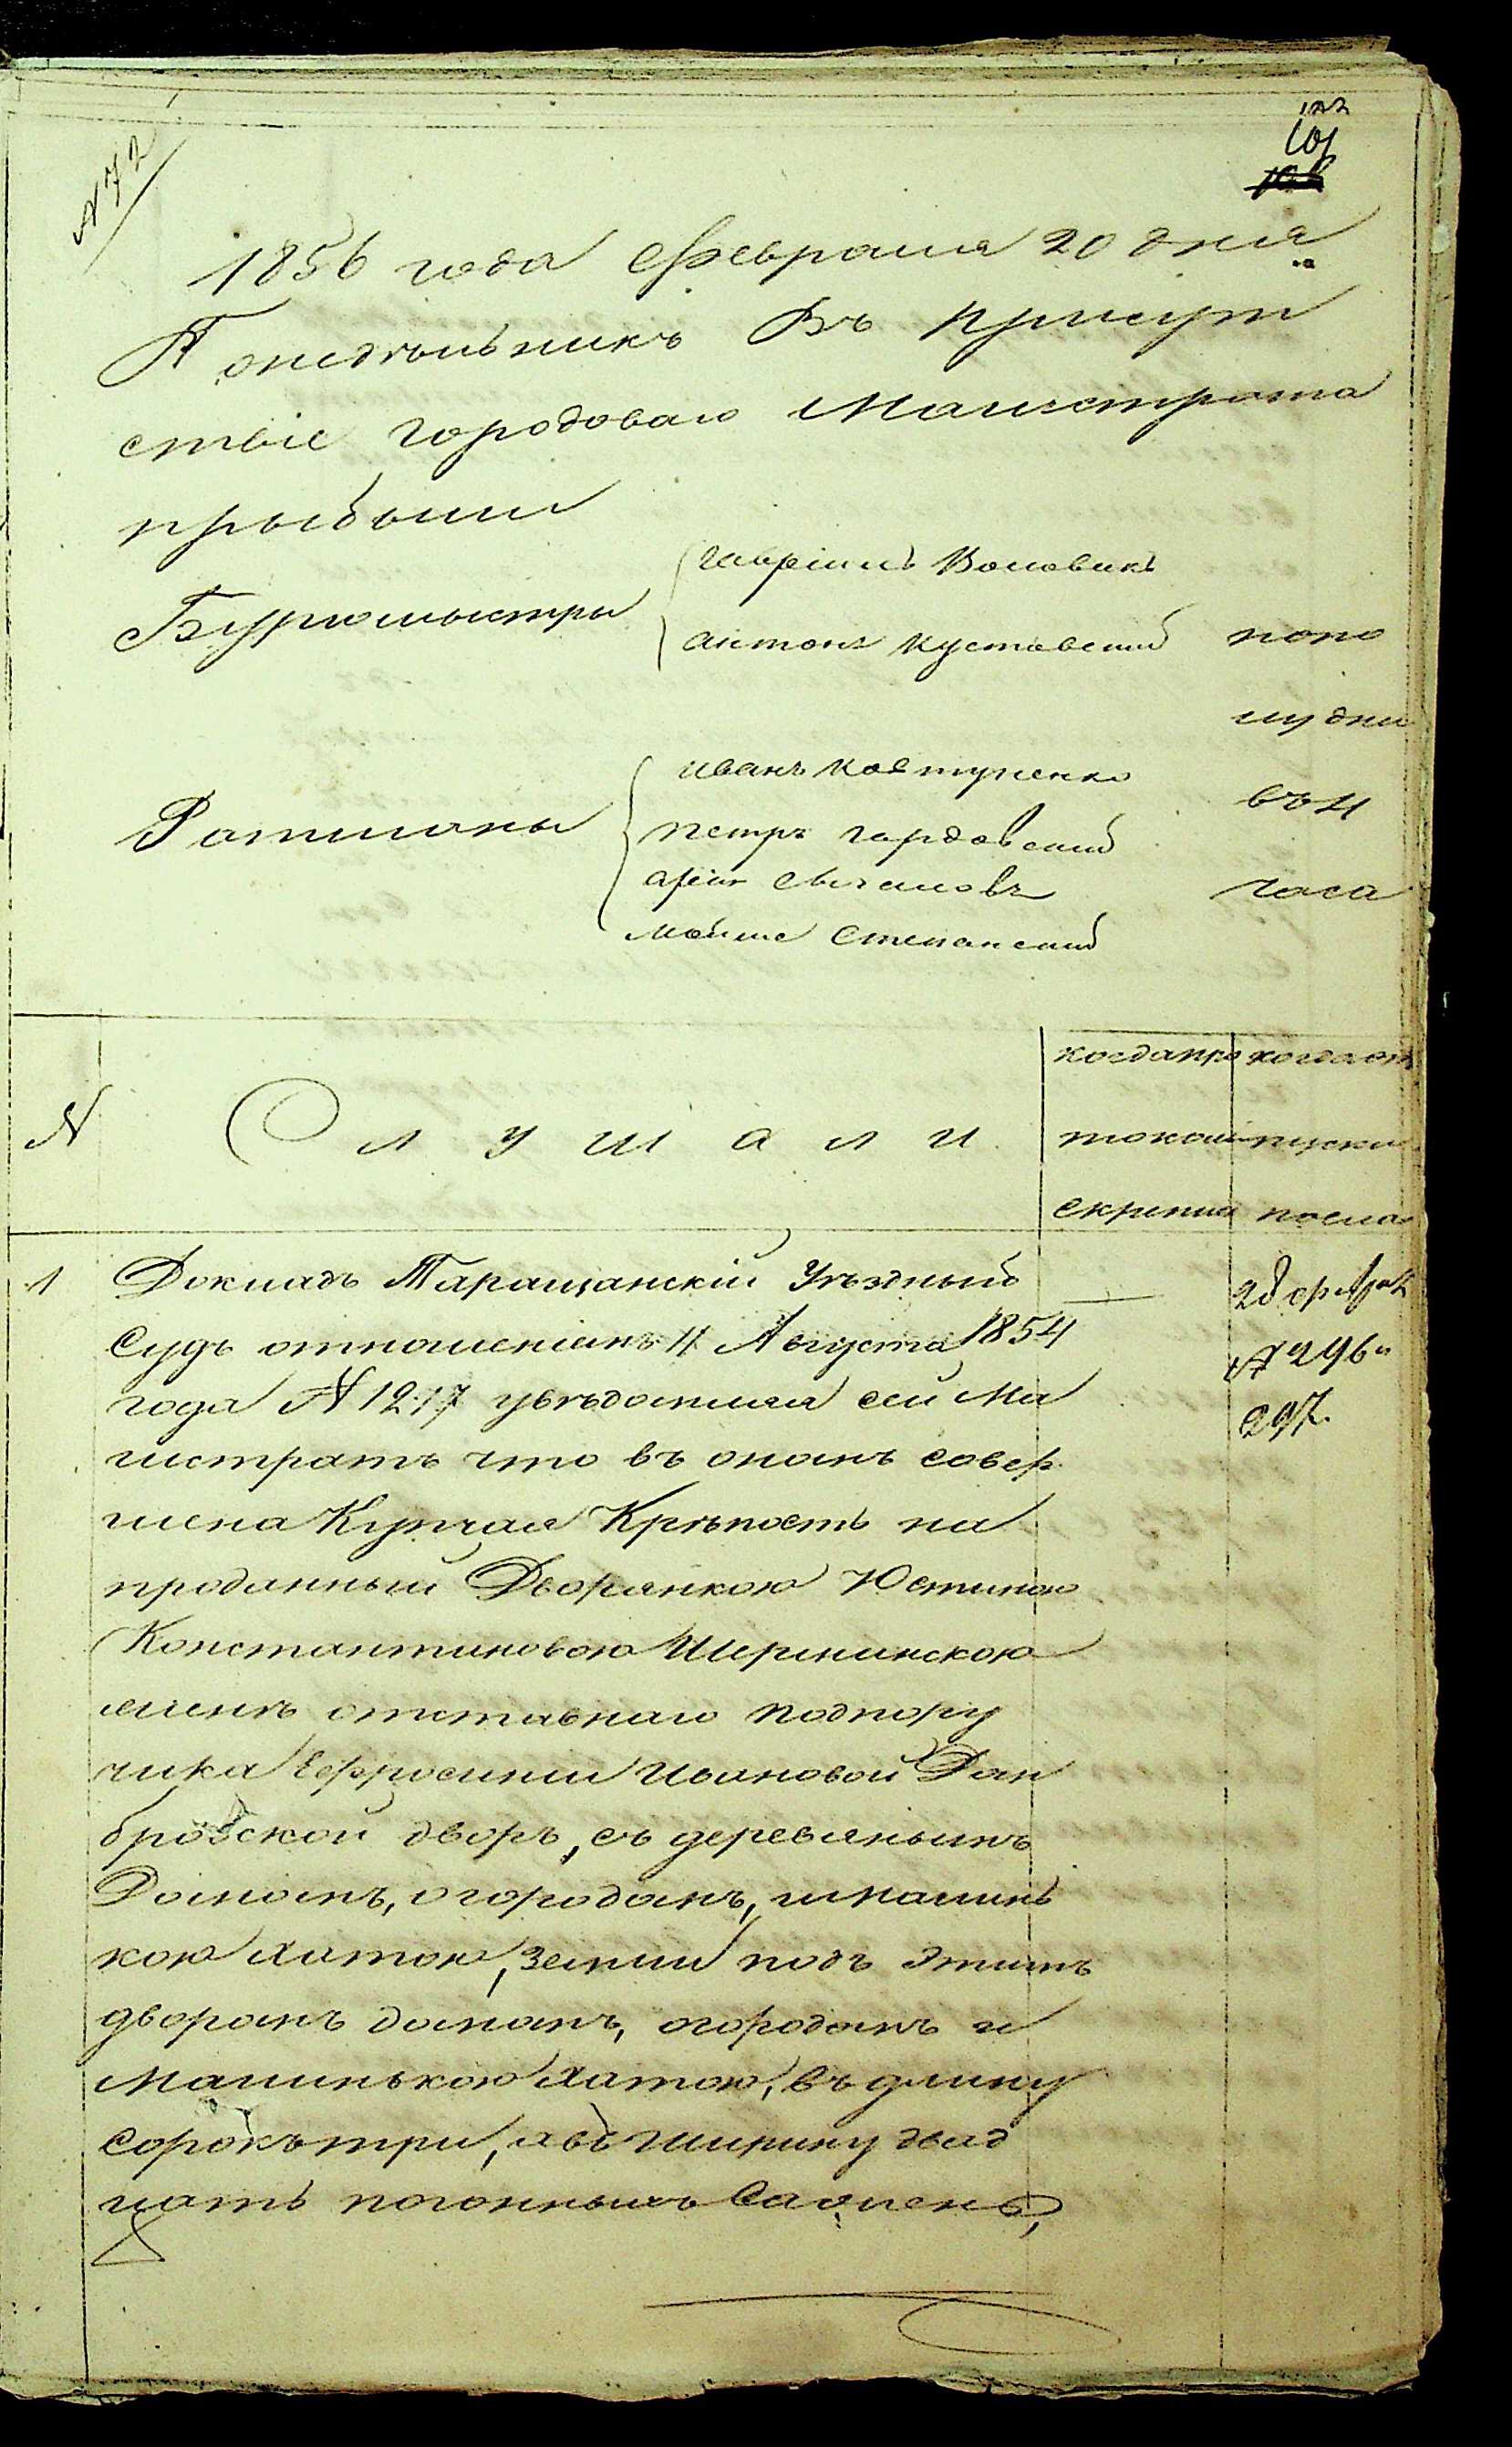 N 72
101
1856 года Февраля 20 дня
Понедѣльникъ Въ присут
ствіе городоваго Магистрата
прыбыли
Бургомыстры
Гавріилъ Воловикъ
антонъ Кустовский
попо
лудни
въ 4
часа
Ратманы
иванъ Ковтуненко
петръ гордовский
Мойше Степанский
N
Слушали
когда про
токолъ
скрепле
когда от
пуски
посла
1
Докладъ Таращанскій Уѣздный
Судъ отношеніемъ 4 Августа 1854
года N 1217 увѣдомляя сей Ма
гистратъ что въ ономъ совер
шена Купчая Крѣпость на
проданный Дворянкою Юстиною
Константиновою Шернинскою
женѣ отставнаго подпору
чика Ефросиніи Ивановой Дом
бровской дворъ, съ деревяннымъ
Домомъ, огородомъ, и малинь
кою хатою, земли подъ этимъ
дворомъ домомъ, огородомъ и
малинькою хатою, въ длину
сорокъ три, а въ ширину двад
цать погонныхъ Саженъ,
28 февра
N 296 и
297.